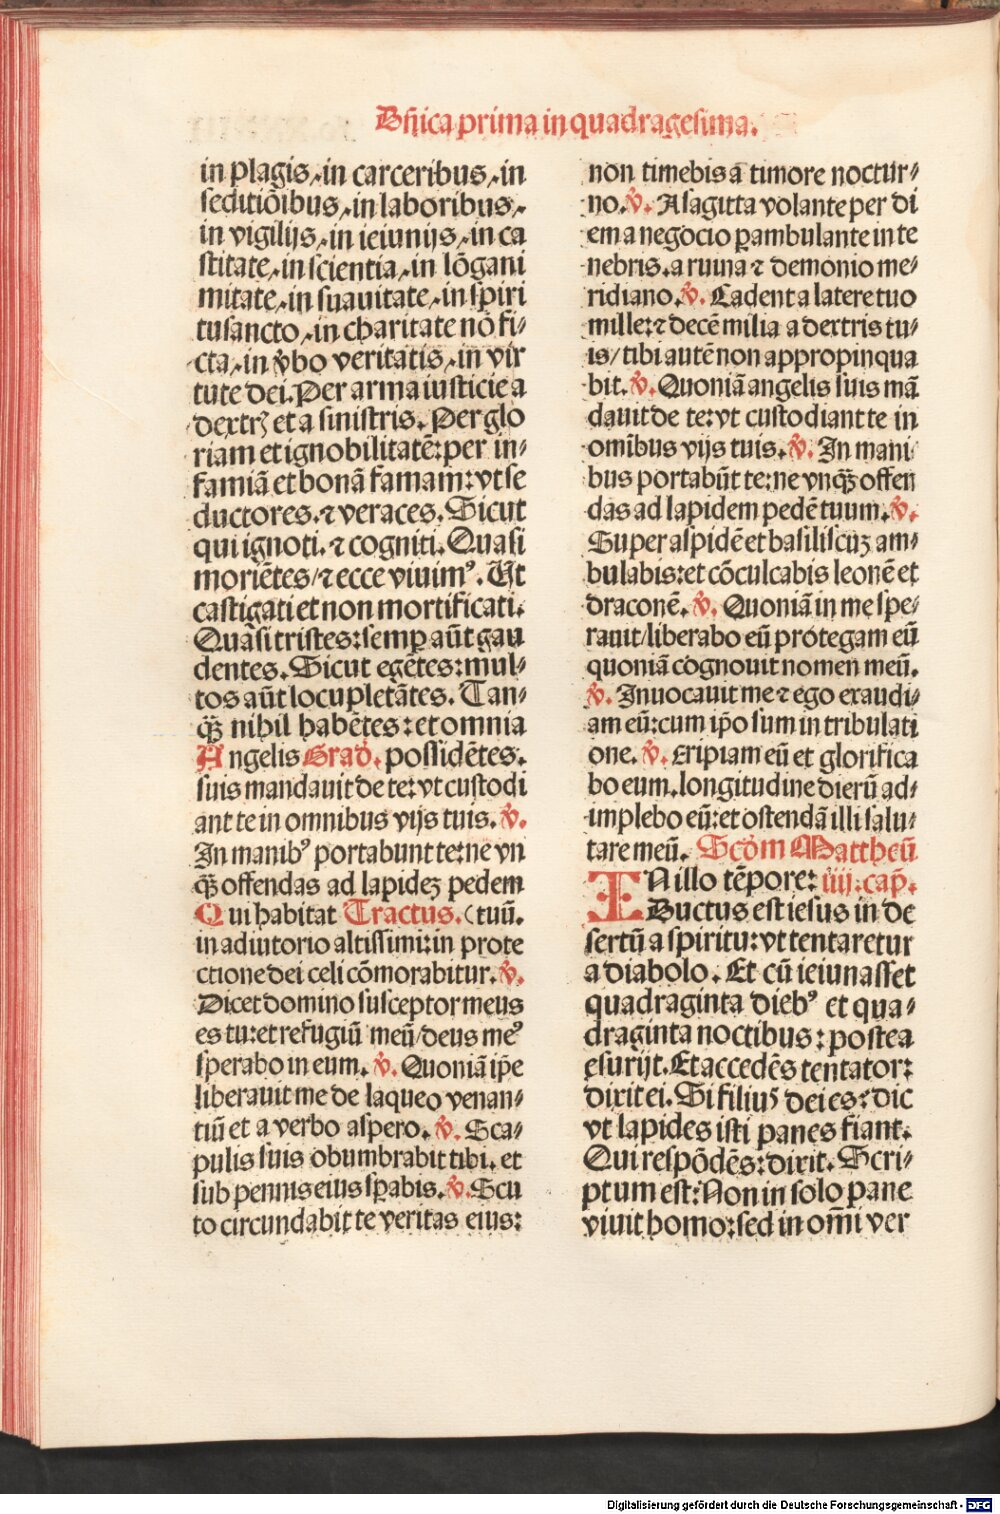 Dn̄ica prima in quadragesima.
in plagis, in carceribus, in
seditiōibus, in laboribus,
in vigilijs, in ieiunijs, in ca
stitate, in scientia, in lōgani
mitate, in suauitate, in spiri
tu sancto, in charitate nō fi⸗
cta, in v̄bo veritatis, in vir
tute dei. Per arma iusticie a
dextrꝫ et a sinistris. Per glo
riam et ignobilitatē: per in⸗
famiā et bonā famam: vt se
ductores. ⁊ veraces. Sicut
qui ignoti. ⁊ cogniti. Quasi
moriētes/ ⁊ ecce viuimꝰ. Ut
castigati et non mortificati.
Quasi tristes: semꝑ aūt gau
dentes. Sicut egētes: mul⸗
tos aūt locupletātes. Tan⸗
qꝫ̄ nihil habētes: et omnia
Angelis Grad̄. possidētes.
suis mandauit de te: vt custodi
ant te in omnibus vijs tuis. v̄.
In manibꝰ portabunt te: ne vn
qꝫ̄ offendas ad lapideꝫ pedem
Qui habitat Tractus. (tuū.
in adiutorio altissimi: in prote
ctione dei celi cōmorabitur. v̄.
Dicet domino susceptor meus
es tu: et refugiū meū/ deus meꝰ
sperabo in eum. v̄. Quoniā ip̄e
liberauit me de laqueo venan⸗
tiū et a verbo aspero. v̄. Sca⸗
pulis suis obumbrabit tibi. et
sub pennis eius sꝑabis. v̄. Scu
to circundabit te veritas eius:
non timebis a timore noctur⸗
no. v̄. A sagitta volante per di
em a negocio ꝑambulante in te
nebris. a ruina ⁊ demonio me⸗
ridiano. v̄. Cadent a latere tuo
mille: ⁊ decē milia a dextris tu⸗
is/ tibi autē non appropinqua
bit. v̄. Quoniā angelis suis mā
dauit de te: vt custodiant te in
omībus vijs tuis. v̄. In mani
bus portabūt te: ne vnqꝫ̄ offen
das ad lapidem pedē tuum. v̄.
Super aspidē et basiliscuꝫ am⸗
bulabis: et cōculcabis leonē et
draconē. v̄. Quoniā in me spe⸗
rauit/ liberabo eū protegam eū
quoniā cognouit nomen meū.
v̄. Inuocauit me ⁊ ego exaudi⸗
am eū: cum ip̄o sum in tribulati
one. v̄. Eripiam eū et glorifica
bo eum. longitudine dierū ad⸗
implebo eū: et ostendā illi salu⸗
tare meū. Scd̄m Mattheū
IN illo tēpore: iiij. cap̄.
Ductus est iesus in de
sertū a spiritu: vt tentaretur
a diabolo. Et cū ieiunasset
quadraginta diebꝰ et qua⸗
draginta noctibus: postea
esurijt. Et accedēs tentator:
dixit ei. Si filius dei es: dic
vt lapides isti panes fiant.
Qui respōdēs: dixit. Scri⸗
ptum est: Non in solo pane
viuit homo: sed in om̄i ver
Digitalisierung gefördert durch die Deutsche Forschungsgemeinschaft - DFG